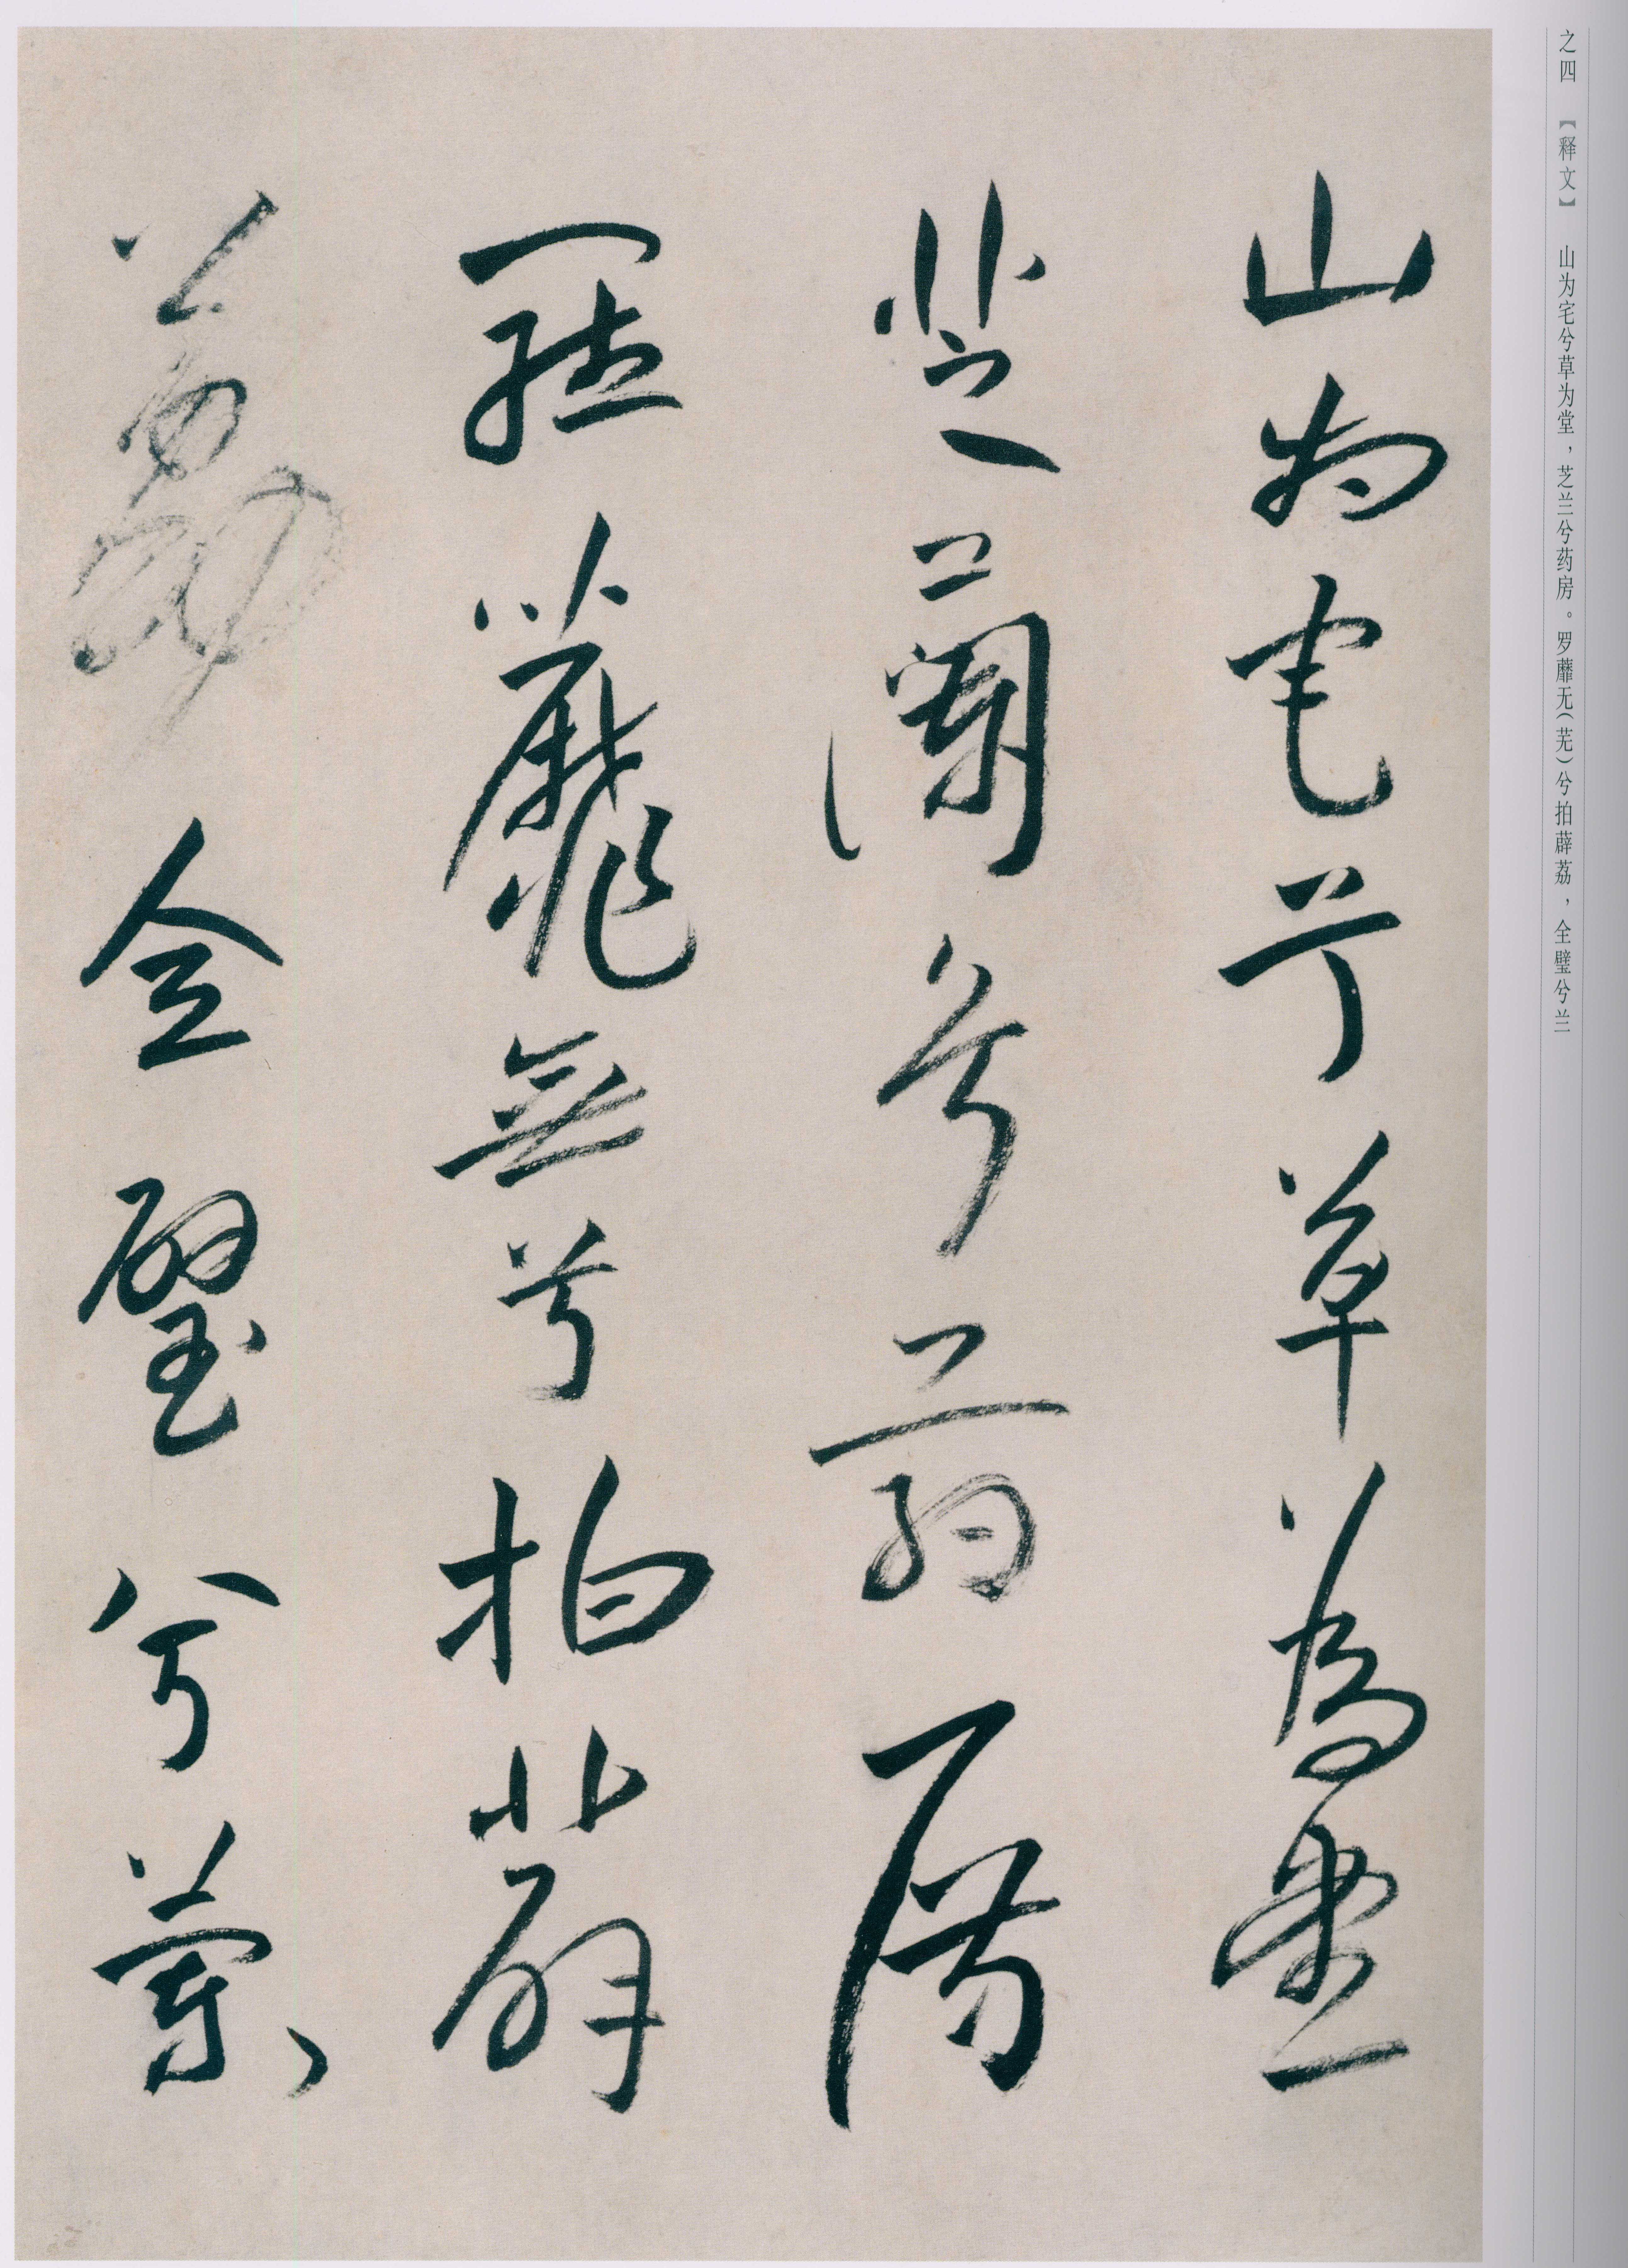 之四 【释文】 山为宅兮草为堂，芝兰兮药房。罗蘼无（芜）兮拍薜荔，全璧兮兰
山为宅兮草為堂
芝蘭兮药房
羅蘼無兮拍薜
荔全璧兮蘭